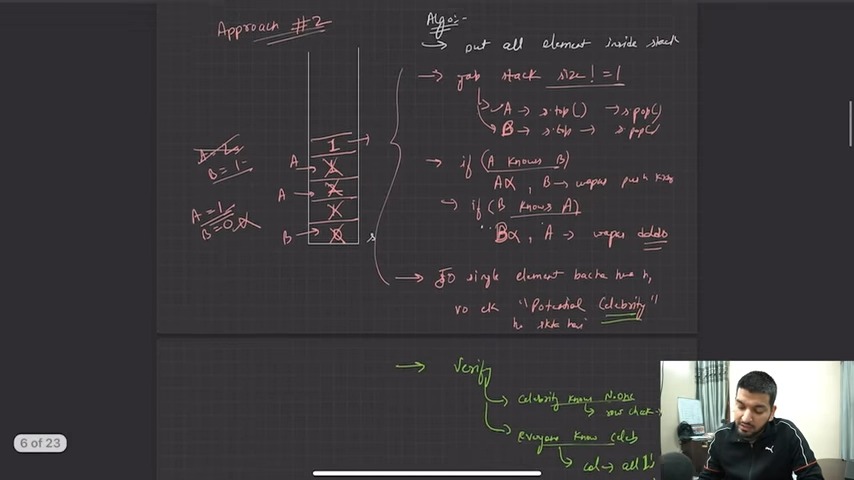 Approach #2
Algo:-
→ put all element inside stack
→ jab stack size ! = 1
→ A → s.top() → s.pop()
B → s.top → s.pop()
→ if (A knows B)
A✗, B → wapas push
→ if (B knows A)
B✗, A → wapas
→ JO single element bacha hua h,
vo ek "Potential Celebrity"
ho skta hai
→ Verify
→ Celebrity knows No one
→ row check →
→ Everyone know celeb
→ col → all 1's
1
A
A
B
B = 1
A = 1
B = 0
6 of 23